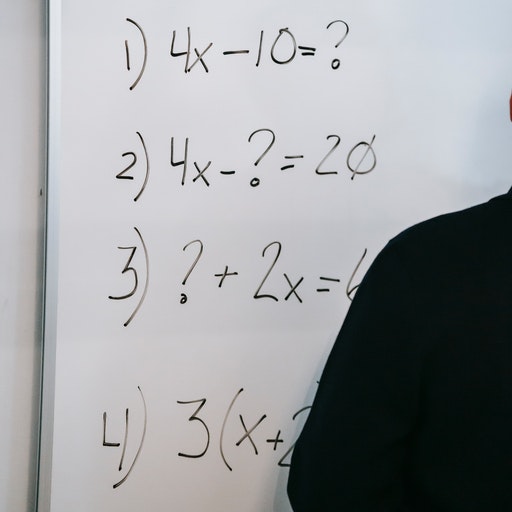 1) 4x-10=?
2) 4x-?=20
3) ?+2x=6
4) 3(x+2